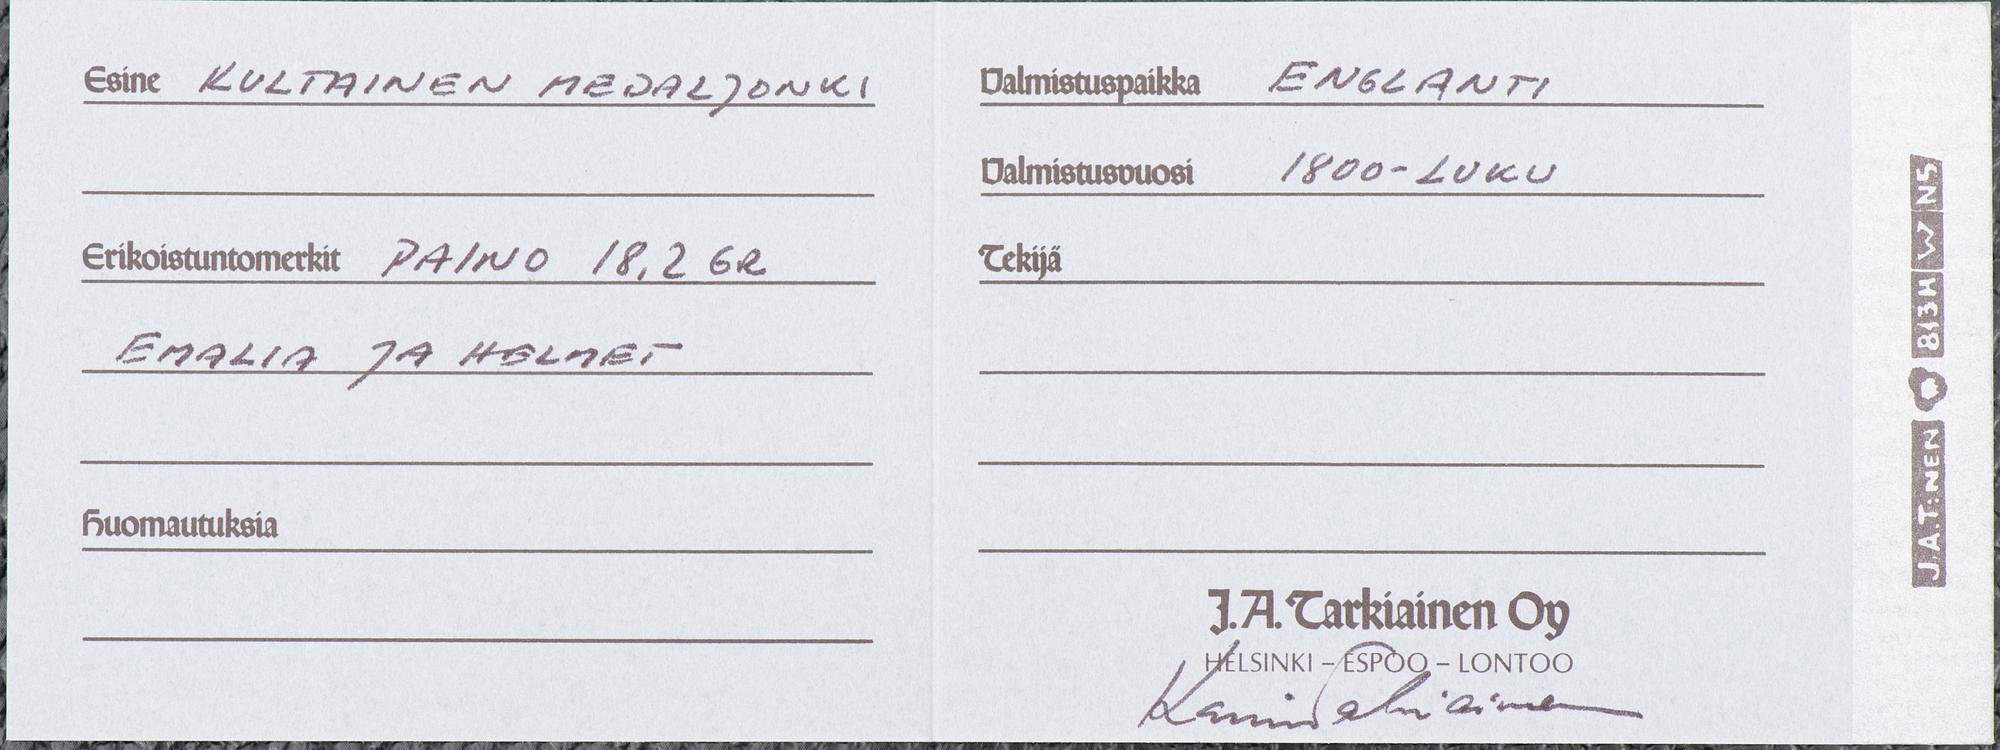 Esine KULTAINEN MEDALJONKI
Erikoistuntomerkit PAINO 18,2 GR
EMALIA JA HELMET
Huomautuksia
Valmistuspaikka ENGLANTI
Valmistusvuosi 1800-LUKU
Tekijä
J.A. Tarkiainen Oy
HELSINKI – ESPOO – LONTOO
J.A.T:NEN 813H W NS